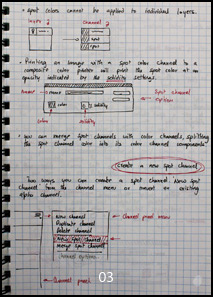 • Spot colors cannot be applied to individual layers.
layer
Channel
spot
• Printing an image with a spot color channel to a
composite color printer will print the spot color at an
opacity indicated by the solidity settings.
Name
Spot Channel
Option
color
% solidity
Color
Solidity
• you can merge spot channels with color channels, splitting
the spot color into its color channel components
Create a new spot channel
Two ways you can create a spot channel New Spot
Channel from the channel menu or convert an existing
alpha channel.
New channel
Duplicate channel
Delete channel
New Spot Channel
merge Spot channel
channel options
channel panel menu
Channel panel
03